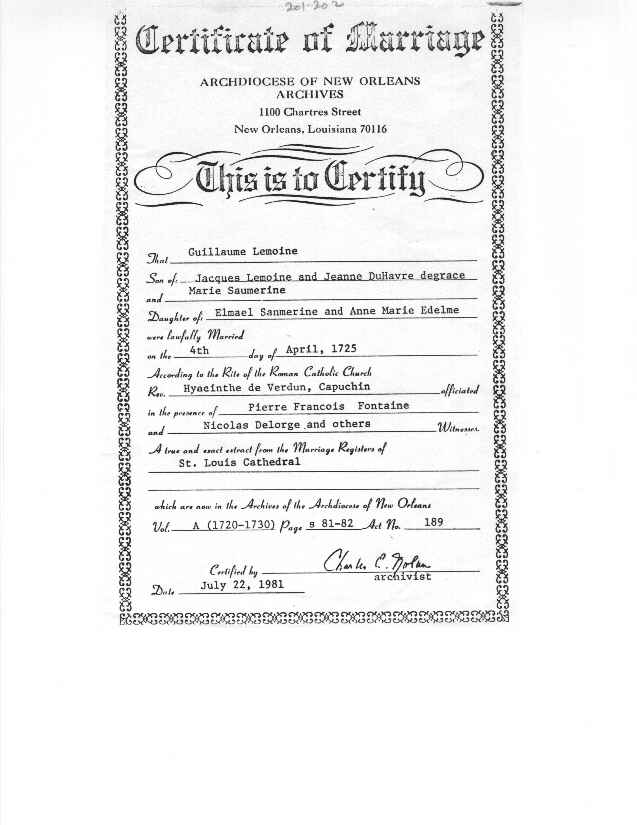 201-202
Certificate of Marriage
ARCHDIOCESE OF NEW ORLEANS
ARCHIVES
1100 Chartres Street
New Orleans, Louisiana 70116
This is to Certify
That Guillaume Lemoine
Son of: Jacques Lemoine and Jeanne DuHavre degrace
and Marie Saumerine
Daughter of: Elmael Sanmerine and Anne Marie Edelme
were lawfully Married
on the 4th day of April, 1725
According to the Rite of the Roman Catholic Church
Rev. Hyacinthe de Verdun, Capuchin officiated
in the presence of Pierre Francois Fontaine
and Nicolas Delorge and others Witnesses.
A true and exact extract from the Marriage Registers of
St. Louis Cathedral
which are now in the Archives of the Archdiocese of New Orleans
Vol. A (1720-1730) Page s 81-82 Act No. 189
Certified by Charles C. Nolan
archivist
Date July 22, 1981